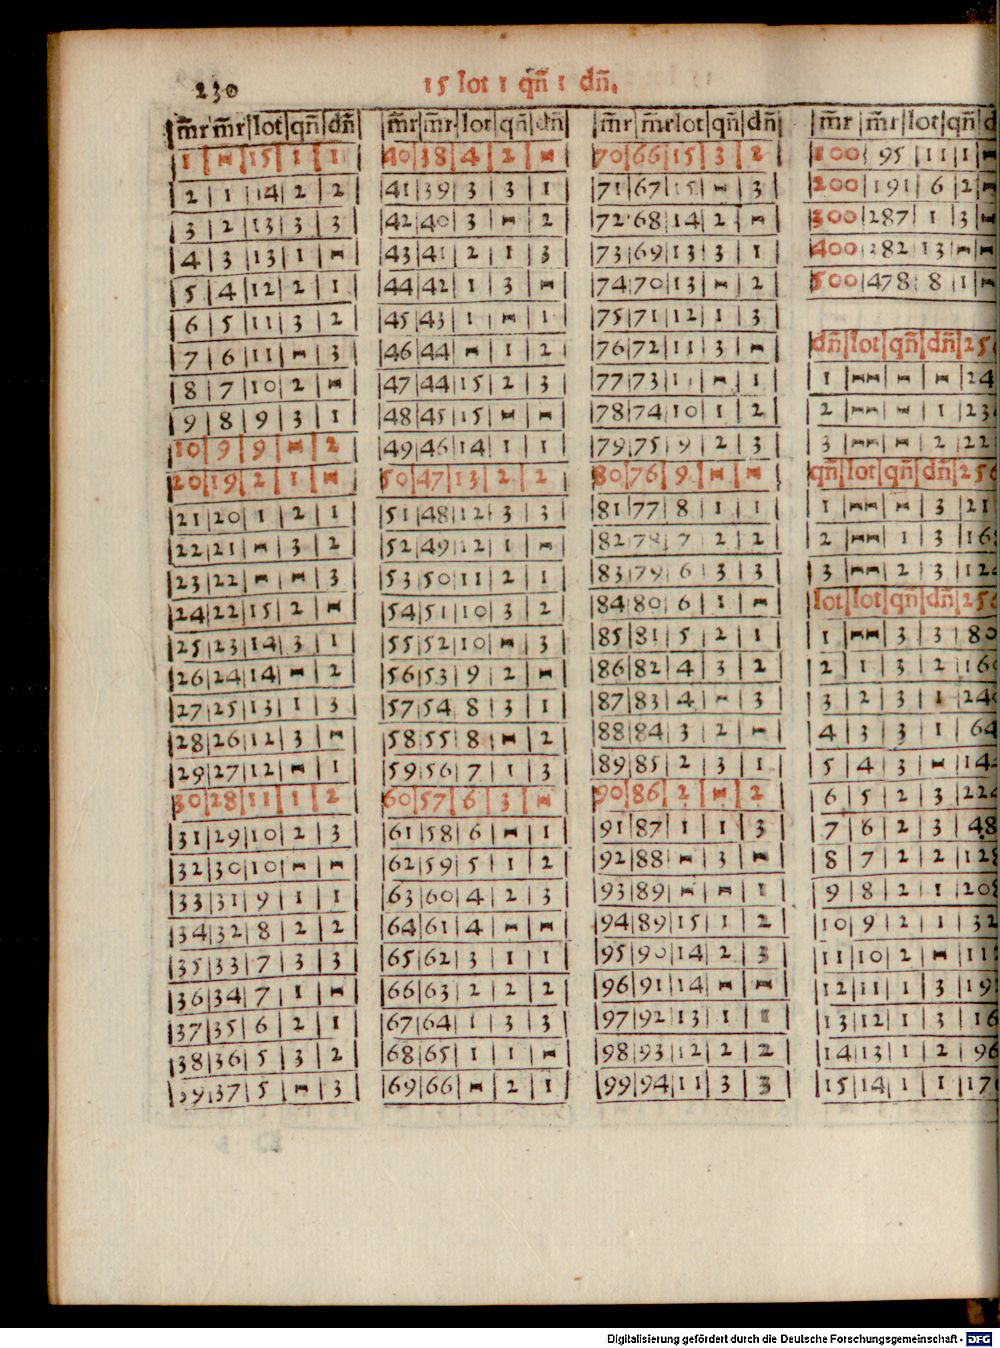 230
15 lot 1 qn̄ 1 dn̄.
m̄r m̄r lot qn̄ dn̄
1 – 15 1 1
2 1 14 2 2
3 2 13 3 3
4 3 13 1 –
5 4 12 2 1
6 5 11 3 2
7 6 11 – 3
8 7 10 2 –
9 8 9 3 1
10 9 9 – 2
20 19 2 1 –
21 20 1 2 1
22 21 – 3 2
23 22 – – 3
24 22 15 2 –
25 23 14 3 1
26 24 14 – 2
27 25 13 1 3
28 26 12 3 –
29 27 12 – 1
30 28 11 1 2
31 29 10 2 3
32 30 10 – –
33 31 9 1 1
34 32 8 2 2
35 33 7 3 3
36 34 7 1 –
37 35 6 2 1
38 36 5 3 2
39 37 5 – 3
m̄r m̄r lot qn̄ dn̄
40 38 4 2 –
41 39 3 3 1
42 40 3 – 2
43 41 2 1 3
44 42 1 3 –
45 43 1 – 1
46 44 – 1 2
47 44 15 2 3
48 45 15 – –
49 46 14 1 1
50 47 13 2 2
51 48 12 3 3
52 49 12 1 –
53 50 11 2 1
54 51 10 3 2
55 52 10 – 3
56 53 9 2 –
57 54 8 3 1
58 55 8 – 2
59 56 7 1 3
60 57 6 3 –
61 58 6 – 1
62 59 5 1 2
63 60 4 2 3
64 61 4 – –
65 62 3 1 1
66 63 2 2 2
67 64 1 3 3
68 65 1 1 –
69 66 – 2 1
m̄r m̄r lot qn̄ dn̄
70 66 15 3 2
71 67 15 – 3
72 68 14 2 –
73 69 13 3 1
74 70 13 – 2
75 71 12 1 3
76 72 11 3 –
77 73 11 – 1
78 74 10 1 2
79 75 9 2 3
80 76 9 – –
81 77 8 1 1
82 78 7 2 2
83 79 6 3 3
84 80 6 1 –
85 81 5 2 1
86 82 4 3 2
87 83 4 – 3
88 84 3 2 –
89 85 2 3 1
90 86 2 – 2
91 87 1 1 3
92 88 – 3 –
93 89 – – 1
94 89 15 1 2
95 90 14 2 3
96 91 14 – –
97 92 13 1 1
98 93 12 2 2
99 94 11 3 3
m̄r m̄r lot qn̄ d
100 95 11 1 –
200 191 6 2 –
300 287 1 3 –
400 282 13 – –
500 478 8 1 –
dn̄ lot qn̄ dn̄ 256
1 – – – 24
2 – – 1 23
3 – – 2 22
qn̄ lot qn̄ dn̄ 256
1 – – 3 21
2 – 1 3 16
3 – 2 3 12
lot lot qn̄ dn̄ 256
1 – 3 3 80
2 1 3 2 160
3 2 3 1 240
4 3 3 1 64
5 4 3 – 14
6 5 2 3 224
7 6 2 3 48
8 7 2 2 128
9 8 2 1 208
10 9 2 1 32
11 10 2 – 11
12 11 1 3 19
13 12 1 3 16
14 13 1 2 96
15 14 1 1 17
Digitalisierung gefördert durch die Deutsche Forschungsgemeinschaft - DFG